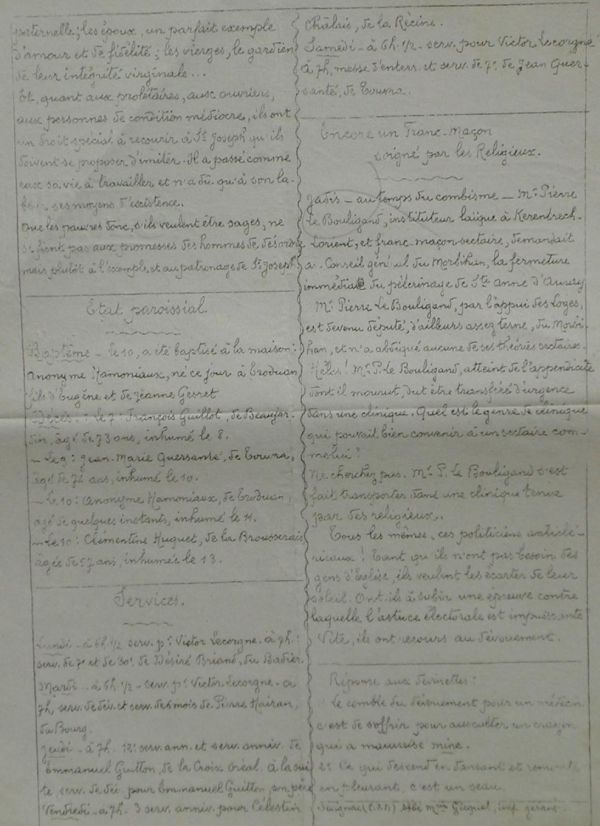 paternelle; les époux, un parfait exemple
d'amour et de fidélité; les vierges, le gardien
de leur intégrité virginale...
Et, quant aux prolétaires, aux ouvriers,
aux personnes de condition médiocre, ils ont
un droit spécial à recourir à St Joseph qu'ils
doivent se proposer d'imiter. Il a passé comme
eux sa vie à travailler et n'a dû qu'à son la-
beur ses moyens d'existence.
Que les pauvres donc, s'ils veulent être sages, ne
se fient pas aux promesses des hommes de désordre
mais plutôt à l'exemple et au patronage de St Joseph
Etat paroissial.
Baptême - le 10, a été baptisé à la maison:
anonyme Hamoniaux, né ce jour à Eroduan
fils d'Eugène et de Jeanne Gerret
Décès: - Le 7: François Guillet, de Beaujar-
din, âgé de 73 ans, inhumé le 8.
- Le 9: Jean-Marie Quersanté, de Touvra,
âgé de 74 ans, inhumé le 10.
- Le 10: anonyme Hamoniaux, de Eroduan,
âgé de quelques instants, inhumé le 11.
- Le 10: Clémentine Huguet, de la Brousserais
âgée de 57 ans, inhumée le 13.
Services.
Lundi - à 6h 1/2 serv. pr Victor Lecorgne. à 7h:
serv. de 7e et de 30e de Désiré Briand, du Badier.
Mardi - à 6h 1/2 - serv. pr Victor Lecorgne. à
7h, serv. de dév. et serv. des mois de Pierre Hairan,
du Bourg.
Jeudi - à 7h, 12e serv. ann. et serv. anniv. de
Emmanuel Guitton, de la Croix Créal. à la sui
te serv. de dév. pour Emmanuel Guitton, son père
Vendredi - à 7h. 3 serv. anniv. pour Célestin
Chalais, de la Récine.
Samedi - à 6h. 1/2 - serv. pour Victor Lecorgne
à 7h, messe d'enterr. et serv. de 7e de Jean Quer-
santé, de Touvra.
Encore un Franc-Maçon
soigné par les Religieux.
Jadis - au temps du combisme - Mr Pierre
Le Bouligand, instituteur laïque à Kerentrech-
Lorient, et franc-maçon sectaire, demandait
au Conseil général du Morbihan, la fermeture
immédiate du pèlerinage de Ste Anne d'Auray
Mr Pierre Le Bouligand, par l'appui des Loges,
est devenu député, d'ailleurs assez terne, du Morbi-
han, et n'a abdiqué aucune de ses théories sectaires.
Hélas! Mr P. Le Bouligand, atteint de l'appendicite
dont il mourut, dut être transféré d'urgence
dans une clinique. Quel est le genre de clinique
qui pouvait bien convenir à un sectaire com-
me lui?
Ne cherchez pas. Mr P. Le Bouligand s'est
fait transporter dans une clinique tenue
par des religieux.
Tous les mêmes, ces politiciens anticlé-
ricaux! Tant qu'ils n'ont pas besoin des
gens d'Eglise, ils veulent les écarter de leur
soleil. Ont-ils à subir une épreuve contre
laquelle l'astuce électorale est impuissante
Vite, ils ont recours au dévouement.
Réponse aux devinettes:
le comble du dévouement pour un médecin
c'est de s'offrir pour ausculter un crayon
qui a mauvaise mine.
2e Ce qui descend en dansant et remonte
en pleurant, c'est un seau.